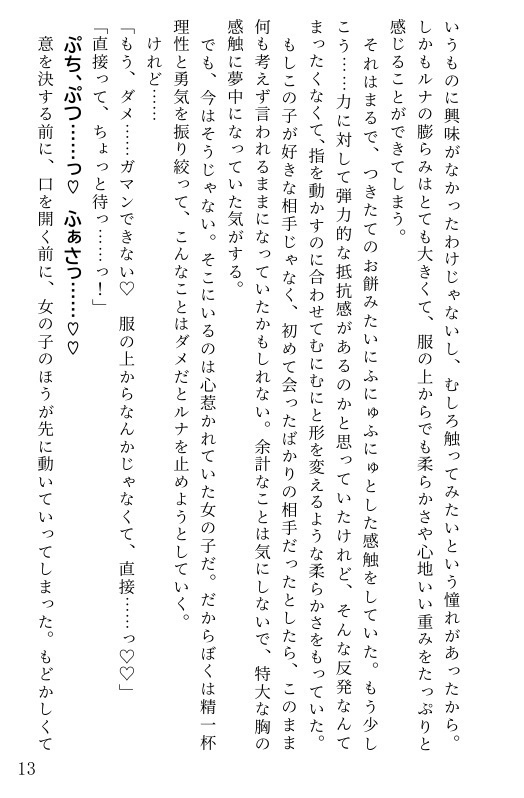 いうものに興味がなかったわけじゃないし、むしろ触ってみたいという憧れがあったから。
しかもルナの膨らみはとても大きくて、服の上からでも柔らかさや心地いい重みをたっぷりと
感じることができてしまう。
それはまるで、つきたてのお餅みたいにふにゅふにゅとした感触をしていた。もう少し
こう……力に対して弾力的な抵抗感があるのかと思っていたけれど、そんな反発なんて
まったくなくて、指を動かすのに合わせてむにむにと形を変えるような柔らかさをもっていた。
もしこの子が好きな相手じゃなく、初めて会ったばかりの相手だったとしたら、このまま
何も考えず言われるままになっていたかもしれない。余計なことは気にしないで、特大な胸の
感触に夢中になっていた気がする。
でも、今はそうじゃない。そこにいるのは心惹かれていた女の子だ。だからぼくは精一杯
理性と勇気を振り絞って、こんなことはダメだとルナを止めようとしていく。
けれど……
「もう、ダメ……ガマンできない♡　服の上からなんかじゃなくて、直接……っ♡♡」
「直接って、ちょっと待っ……っ！」
ぷち、ぷつ……っ♡　ふぁさっ……♡♡
意を決する前に、口を開く前に、女の子のほうが先に動いていってしまった。もどかしくて
13